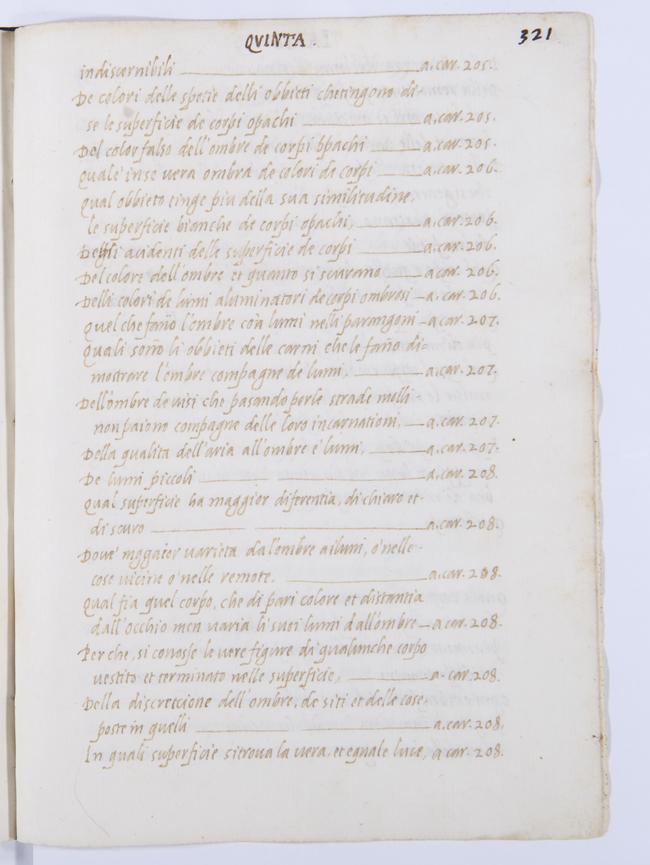 QVINTA.
321
indiscernibili a.car.205.
De colori delle spetie delli obbieti che tingono di
se le superficie de corpi opachi a.car.205.
Del color falso dell'ombre de corpi opachi a.car.205.
Quale in se vera ombra de colori de corpi a.car.206.
Qual obbieto tinge piu della sua similitudine,
le superficie bianche de corpi opachi a.car.206.
Delli acidenti delle superficie de corpi a.car.206.
Del colore dell'ombre et quanto si scurano a.car.206.
Delli colori de lumi aluminatori de corpi ombrosi a.car.206.
Quel che fano l'ombre con lumi nelli parangoni a.car.207.
Quali sono li obbieti delle carni che le fano di=
mostrare l'ombre compagne de lumi, a.car.207.
Dell'ombre de visi che pasando per le strade molli
non paiono compagne delle loro incarnationi, a.car.207.
Della qualita dell'aria all'ombre e' lumi, a.car.207.
De lumi piccoli a.car.208.
Qual superficie ha maggier diferentia, di chiaro et
di scuro a.car.208.
Dove' magator varieta da l'ombre a i lumi, o' nelle
cose vicine o' nelle remote. a.car.208.
Qual fia quel corpo, che di pari colore et distantia
dall'occhio men varia li suoi lumi d'all'ombre a.car.208.
Per che, si conosse le vere figure di qualunche corpo
vestito et terminato nelle superficie, a.car.208.
Della discrettione dell'ombre, de siti et delle cose
poste in quelli a.car.208.
In quali superficie si trova la vera, et equale luce, a car.208.